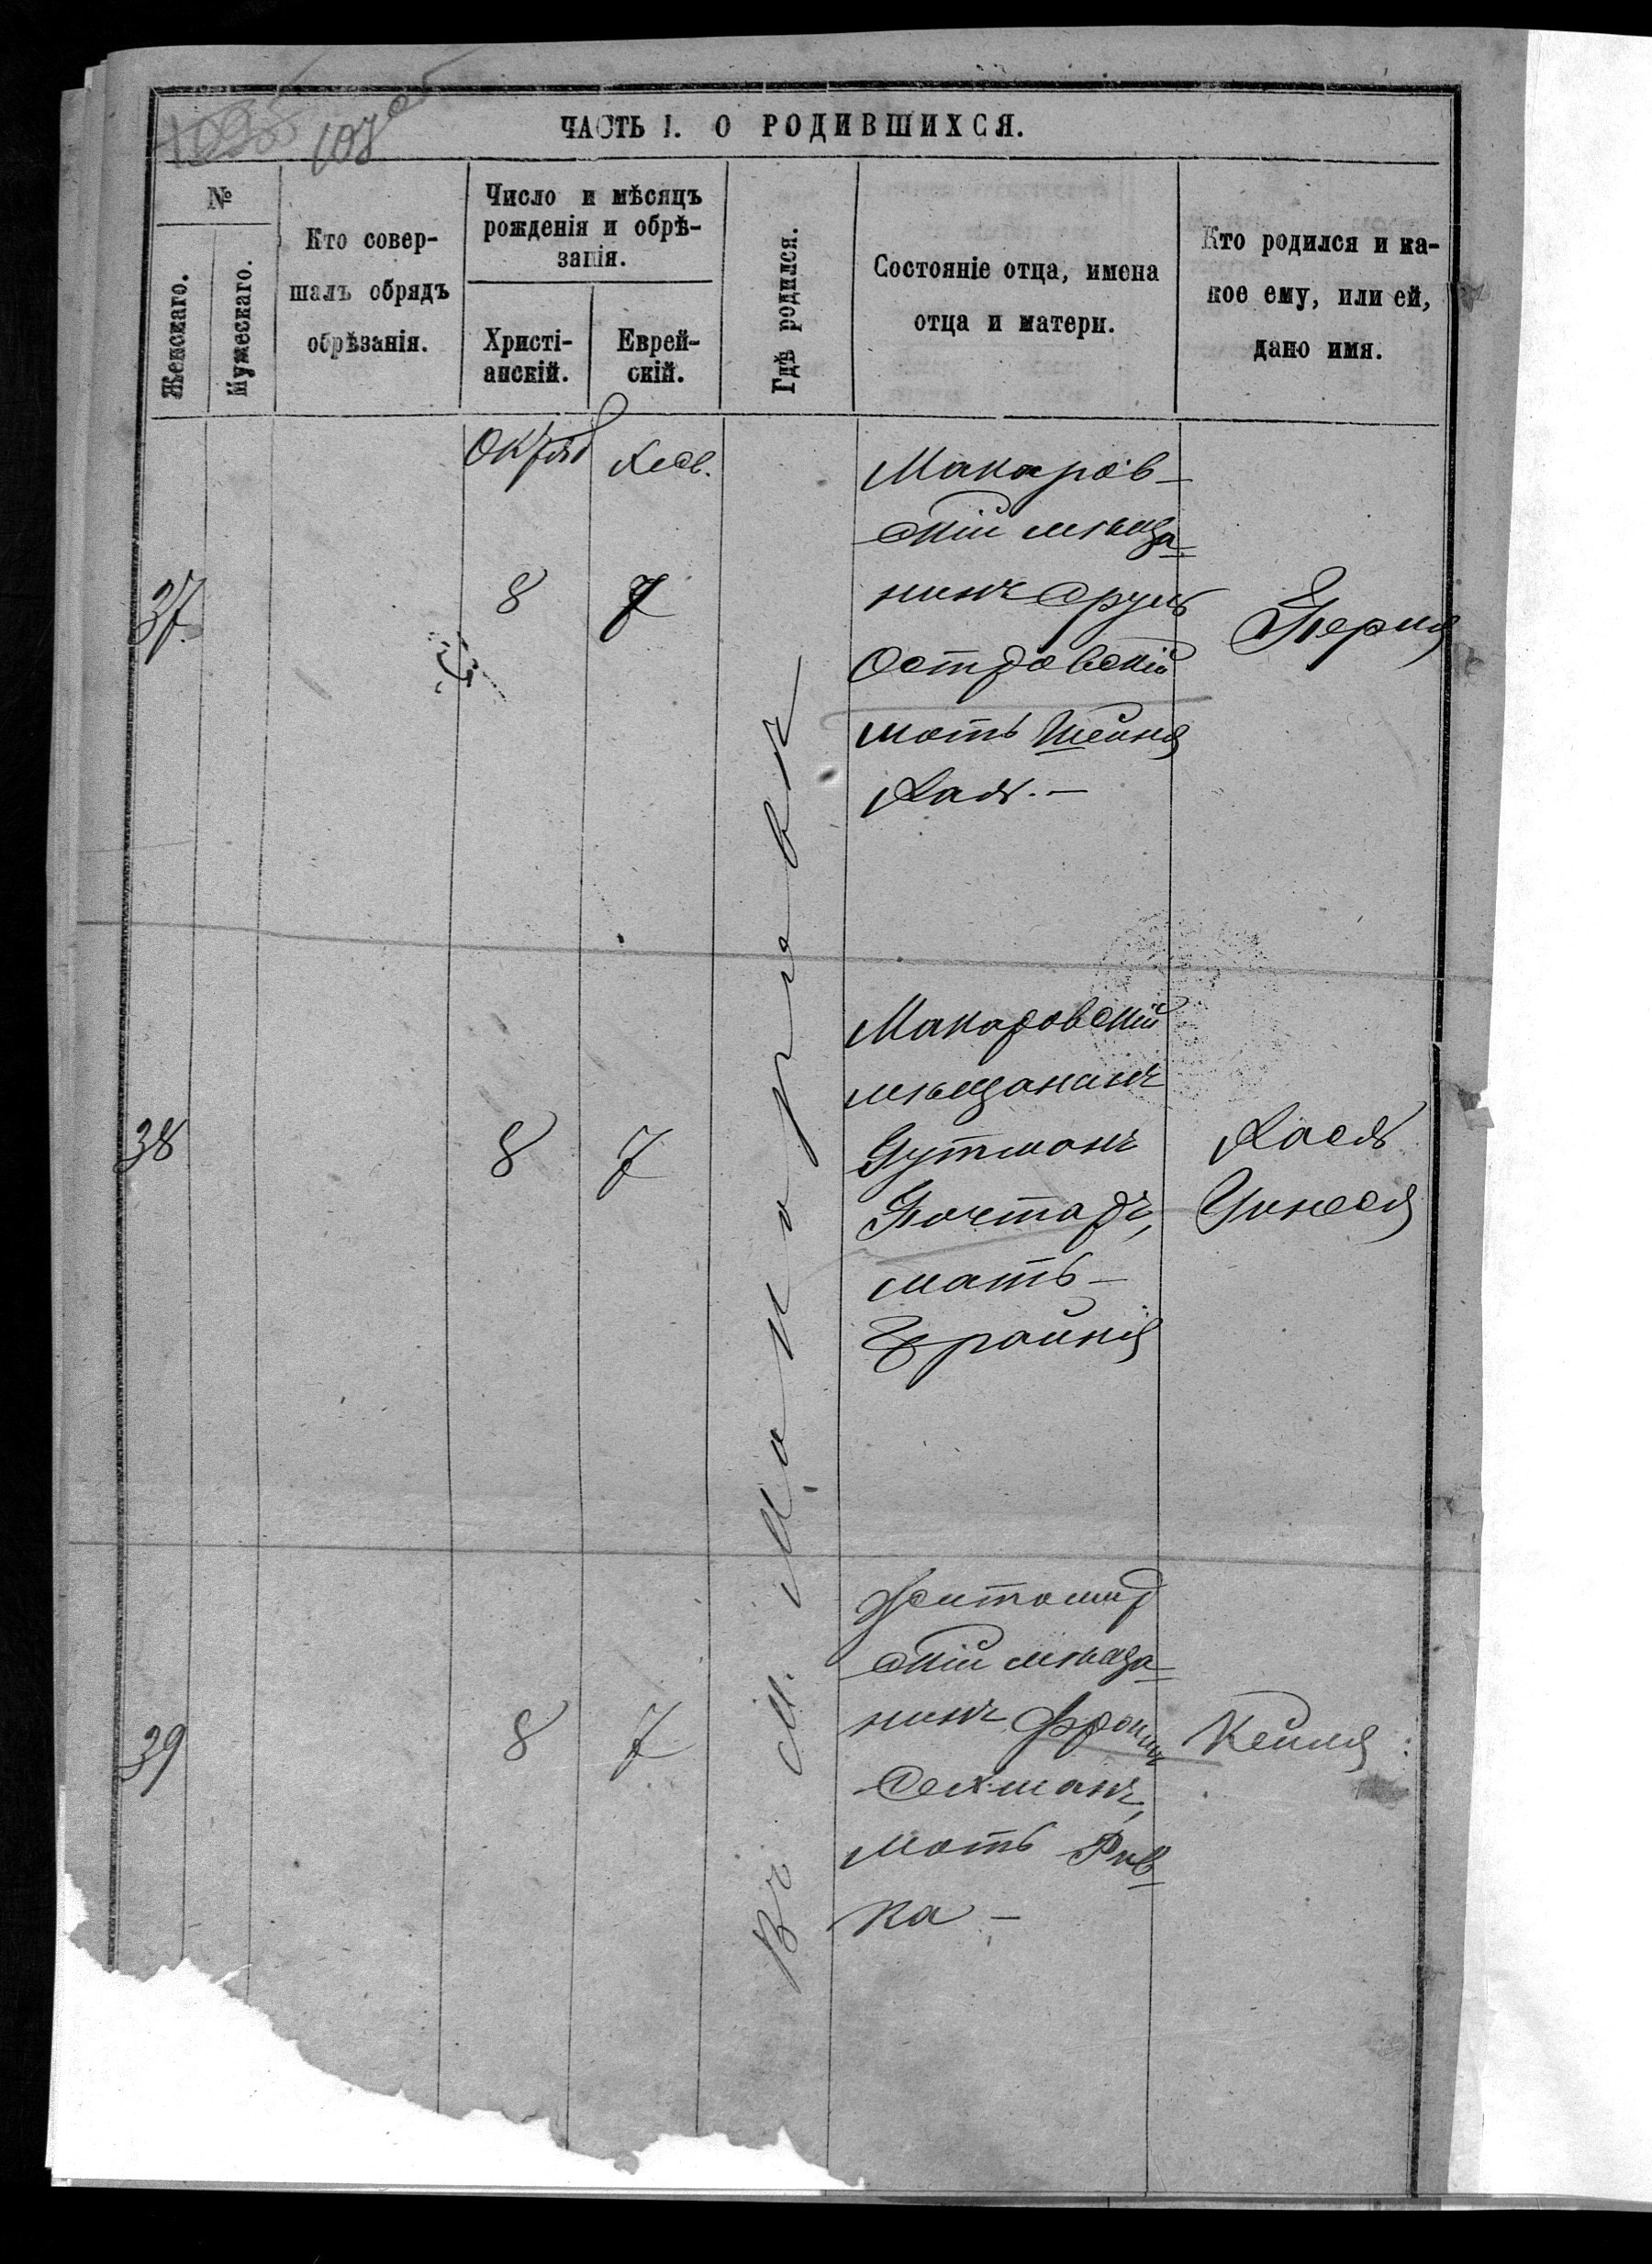 107 об
ЧАСТЬ I. О РОДИВШИХСЯ.
№
Женскаго.
Мужескаго.
Кто совер-
шалъ обрядъ
обрѣзанія.
Число и мѣсяцъ
рожденія и обрѣ-
занія.
Христі-
анскій.
Еврей-
скій.
Гдѣ родился.
Состояніе отца, имена
отца и матери.
Кто родился и ка-
кое ему, или ей,
дано имя.
Октяб
Хесв.
Въ м. Макаровѣ
37
8
7
Макаров-
скій мѣща-
нинъ Сруль
Островскій
мать Шейня
Хая. -
Перля
38
8
7
Макаровскій
мѣщанинъ
Гутманъ
Почтарь,
мать -
Брайня
Хася
Гинеся
39
8
7
Житомир
скій мѣща-
нинъ Фроимъ
Сехманъ,
мать Рив-
ка -
Кейля